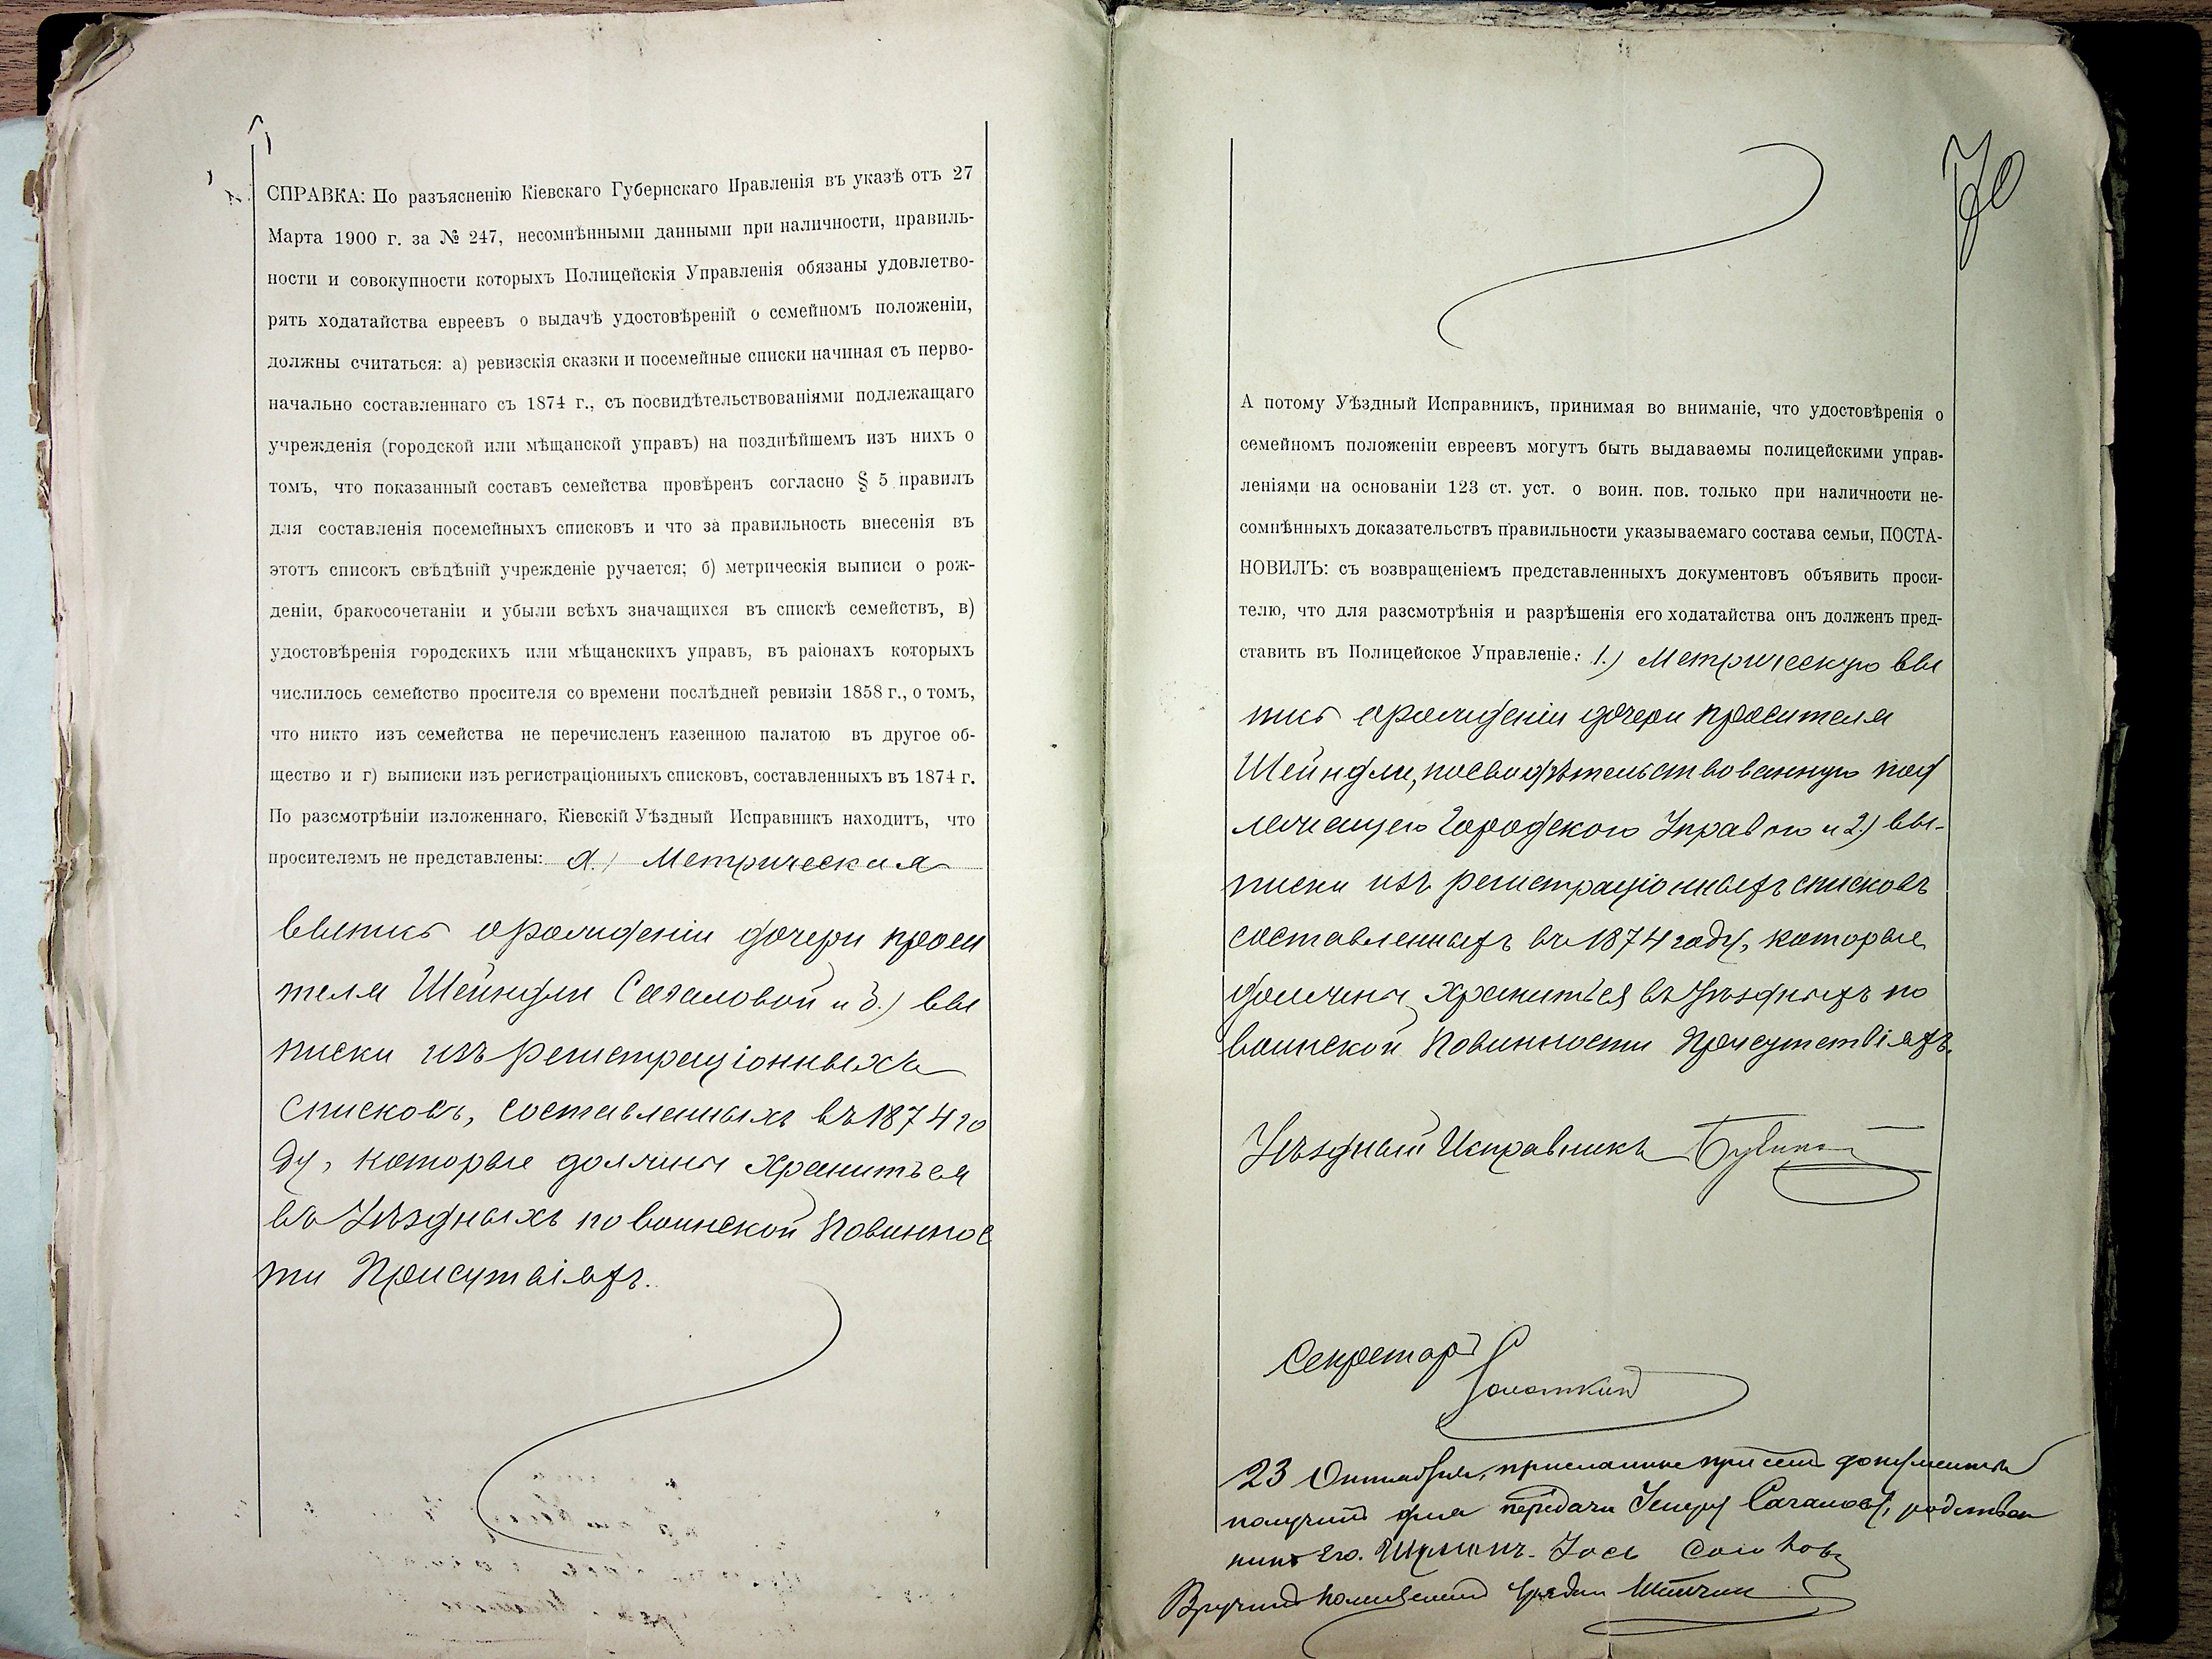 СПРАВКА: По разъясненію Кіевскаго Губернскаго Правленія въ указѣ отъ 27
Марта 1900 г. за № 247, несомнѣнными данными при наличности, правиль-
ности и совокупности которыхъ Полицейскія Управленія обязаны удовлетво-
рять ходатайства евреевъ о выдачѣ удостовѣреній о семейномъ положеніи,
должны считаться: а) ревизскія сказки и посемейные списки начиная съ перво-
начально составленнаго съ 1874 г., съ посвидѣтельствованіями подлежащаго
учрежденія (городской или мѣщанской управъ) на позднѣйшемъ изъ нихъ о
томъ, что показанный составъ семейства провѣренъ согласно § 5 правилъ
для составленія посемейныхъ списковъ и что за правильность внесенія въ
этотъ списокъ свѣдѣній учрежденіе ручается; б) метрическія выписи о рож-
деніи, бракосочетаніи и убыли всѣхъ значащихся въ спискѣ семействъ, в)
удостовѣренія городскихъ или мѣщанскихъ управъ, въ раіонахъ которыхъ
числилось семейство просителя со времени послѣдней ревизіи 1858 г., о томъ,
что никто изъ семейства не перечисленъ казенною палатою въ другое об-
щество и г) выписки изъ регистраціонныхъ списковъ, составленныхъ въ 1874 г.
По разсмотрѣніи изложеннаго, Кіевскій Уѣздный Исправникъ находитъ, что
просителемъ не представлены: а.) Метрическая
выпись о рожденіи дочери проси
теля Шейндли Сагаловой и б.) вы
писки изъ регистраціонныхъ
списковъ, составленныхъ въ 1874 го
ду, которые должны храниться
въ Уѣздныхъ по воинской Повиннос
ти Присутвіяхъ.
70
А потому Уѣздный Исправникъ, принимая во вниманіе, что удостовѣренія о
семейномъ положеніи евреевъ могутъ быть выдаваемы полицейскими управ-
леніями на основаніи 123 ст. уст. о воин. пов. только при наличности не-
сомнѣнныхъ доказательствъ правильности указываемаго состава семьи, ПОСТА-
НОВИЛЪ: съ возвращеніемъ представленныхъ документовъ объявить проси-
телю, что для разсмотрѣнія и разрѣшенія его ходатайства онъ долженъ пред-
ставить въ Полицейское Управленіе: 1.) Метрическую вы
пись о рожденіи дочери просителя
Шейндли, посвидѣтельствованную под
лежащею Городскою Управою и 2.) вы-
писки изъ регистраціонныхъ списковъ
составленныхъ въ 1874 году, которые
должны храниться въ Уѣздныхъ по
воинской Повинности Присутствіяхъ.
Уѣздный Исправникъ
Секретарь
23 Октября, присланные при семъ документы
получилъ для передачи Сагалову, родствен
никъ его. Іось
Вручилъ Полицейскій